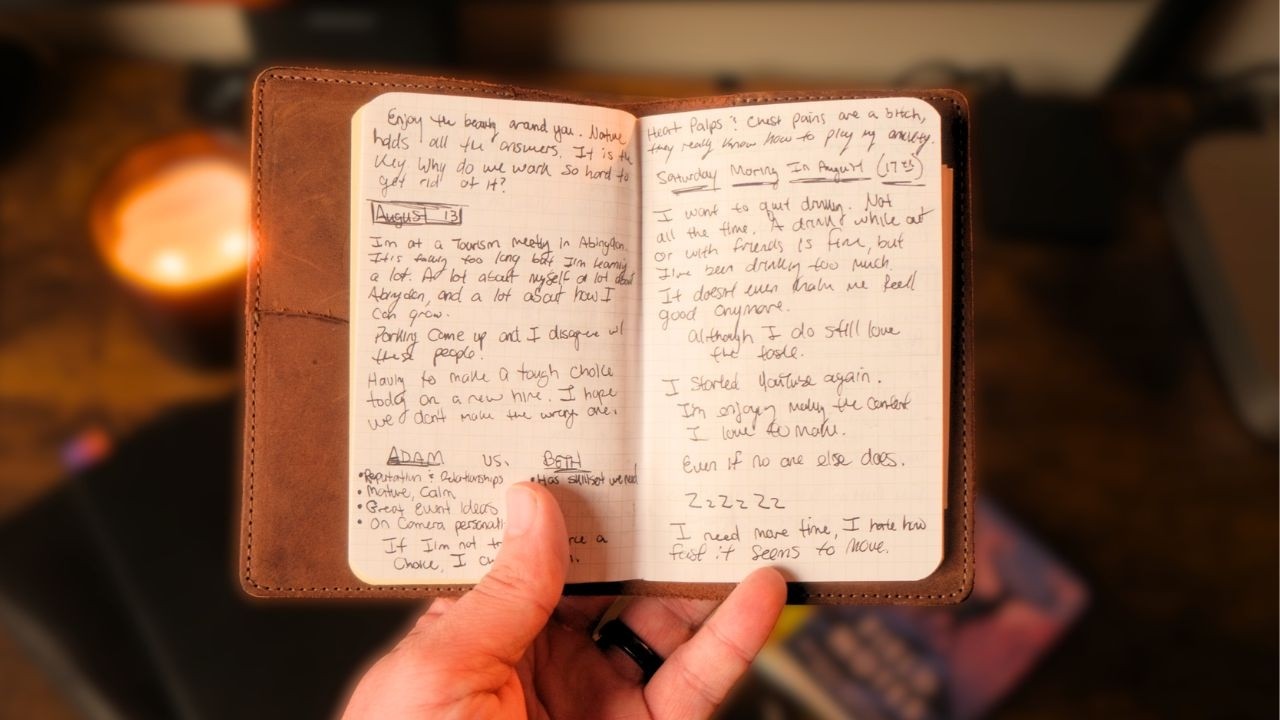 Enjoy the beauty around you. Nature
holds all the answers. It is the
Key. Why do we work so hard to
get rid of it?
August 13
I'm at a Tourism meeting in Abingdon.
It's fairly too long but I'm learning
a lot. A lot about myself a lot about
Abingdon, and a lot about how I
can grow.
Parking came up and I disagree w/
these people!
Having to make a tough choice
today on a new hire. I hope
we don't make the wrong one.
ADAM vs. BETH
• Reputation & Relationships
• Has skillset we need
• Mature, Calm
• Great Event Ideas
• On Camera
If I'm not a
Choice, I
Heart Palps & Chest pains are a bitch,
they really know how to play my anxiety.
Saturday Morning In August (17th)
I want to quit drinking. Not
all the time. A drink while out
or with friends is fine, but
I've been drinking too much.
It doesn't even make me feel
good anymore.
although I do still love
the taste.
I started YouTube again.
I'm enjoying making the content
I love to make.
Even if no one else does.
ZzZzZz
I need more time, I hate how
fast it seems to move.